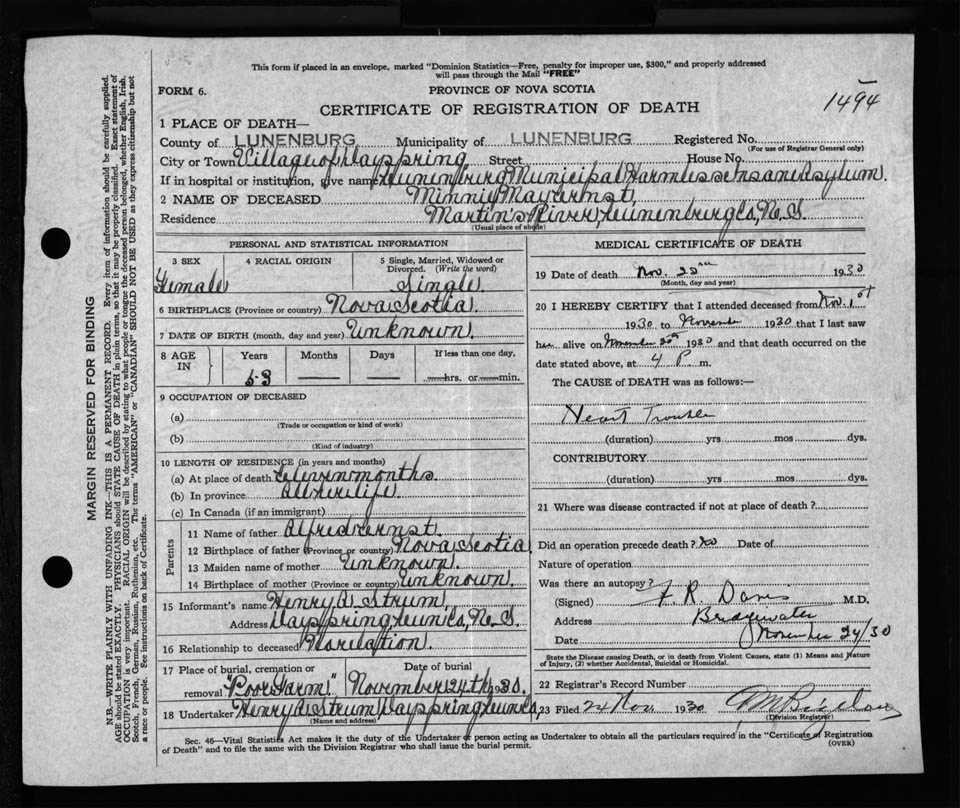 This form if placed in an envelope, marked "Dominion Statistics—Free, penalty for improper use, $300," and properly addressed
will pass through the Mail "FREE"
FORM 6.
PROVINCE OF NOVA SCOTIA
1494
CERTIFICATE OF REGISTRATION OF DEATH
1 PLACE OF DEATH—
County of LUNENBURG Municipality of LUNENBURG Registered No.
(For use of Registrar General only)
City or Town Village of Dayspring Street House No.
If in hospital or institution, give name Lunenburg Municipal Harmless Insane Asylum.
2 NAME OF DECEASED Minnie May Ernst,
Residence Martin's River, Lunenburg Co, N.S.
(Usual place of abode)
PERSONAL AND STATISTICAL INFORMATION
3 SEX 4 RACIAL ORIGIN 5 Single, Married, Widowed or Divorced. (Write the word)
Female Single
6 BIRTHPLACE (Province or country) Nova Scotia.
7 DATE OF BIRTH (month, day and year) Unknown.
8 AGE IN Years Months Days If less than one day,
53 — — —hrs. or —min.
9 OCCUPATION OF DECEASED
(a)
(Trade or occupation or kind of work)
(b)
(Kind of industry)
10 LENGTH OF RESIDENCE (in years and months)
(a) At place of death Eleven months
(b) In province All her life.
(c) In Canada (if an immigrant)
Parents
11 Name of father Alfred Ernst.
12 Birthplace of father (Province or country) Nova Scotia.
13 Maiden name of mother Unknown.
14 Birthplace of mother (Province or country) Unknown.
15 Informant's name Henry A. Strum,
Address Dayspring Lun Co, N.S.
16 Relationship to deceased No relation.
17 Place of burial, cremation or removal "Poor Farm" Date of burial November 24th 1930.
18 Undertaker Henry A. Strum Dayspring Lun Co,
(Name and address)
MEDICAL CERTIFICATE OF DEATH
19 Date of death Nov. 22nd 1930
(Month, day and year)
20 I HEREBY CERTIFY that I attended deceased from Nov. 1st
1930 to November 1930 that I last saw
her alive on November 20th 1930 and that death occurred on the
date stated above, at 4 P. m.
The CAUSE of DEATH was as follows:—
Heart Trouble
(duration) yrs mos dys.
CONTRIBUTORY
(duration) yrs mos dys.
21 Where was disease contracted if not at place of death?
Did an operation precede death? No Date of
Nature of operation
Was there an autopsy?
(Signed) F. R. Davis M.D.
Address Bridgewater
Date November 24/30
State the Disease causing Death, or in death from Violent Causes, state (1) Means and Nature of Injury, (2) whether Accidental, Suicidal or Homicidal.
22 Registrar's Record Number
23 Filed 24 Nov 1930
(Division Registrar)
Sec. 46—Vital Statistics Act makes it the duty of the Undertaker or person acting as Undertaker to obtain all the particulars required in the "Certificate of Registration
of Death" and to file the same with the Division Registrar who shall issue the burial permit.
(OVER)
MARGIN RESERVED FOR BINDING
N.B.—WRITE PLAINLY WITH UNFADING INK—THIS IS A PERMANENT RECORD. Every item of information should be carefully supplied.
AGE should be stated EXACTLY. PHYSICIANS should STATE CAUSE OF DEATH in plain terms, so that it may be properly classified. Exact statement of
OCCUPATION is very important. RACIAL ORIGIN will be described by stating to what people or tongue the deceased person belonged, whether English, Irish,
Scotch, French, German, Russian, Ruthenian, etc. The terms "AMERICAN" or "CANADIAN" SHOULD NOT BE USED as they express citizenship but not
a race or people. See instructions on back of Certificate.